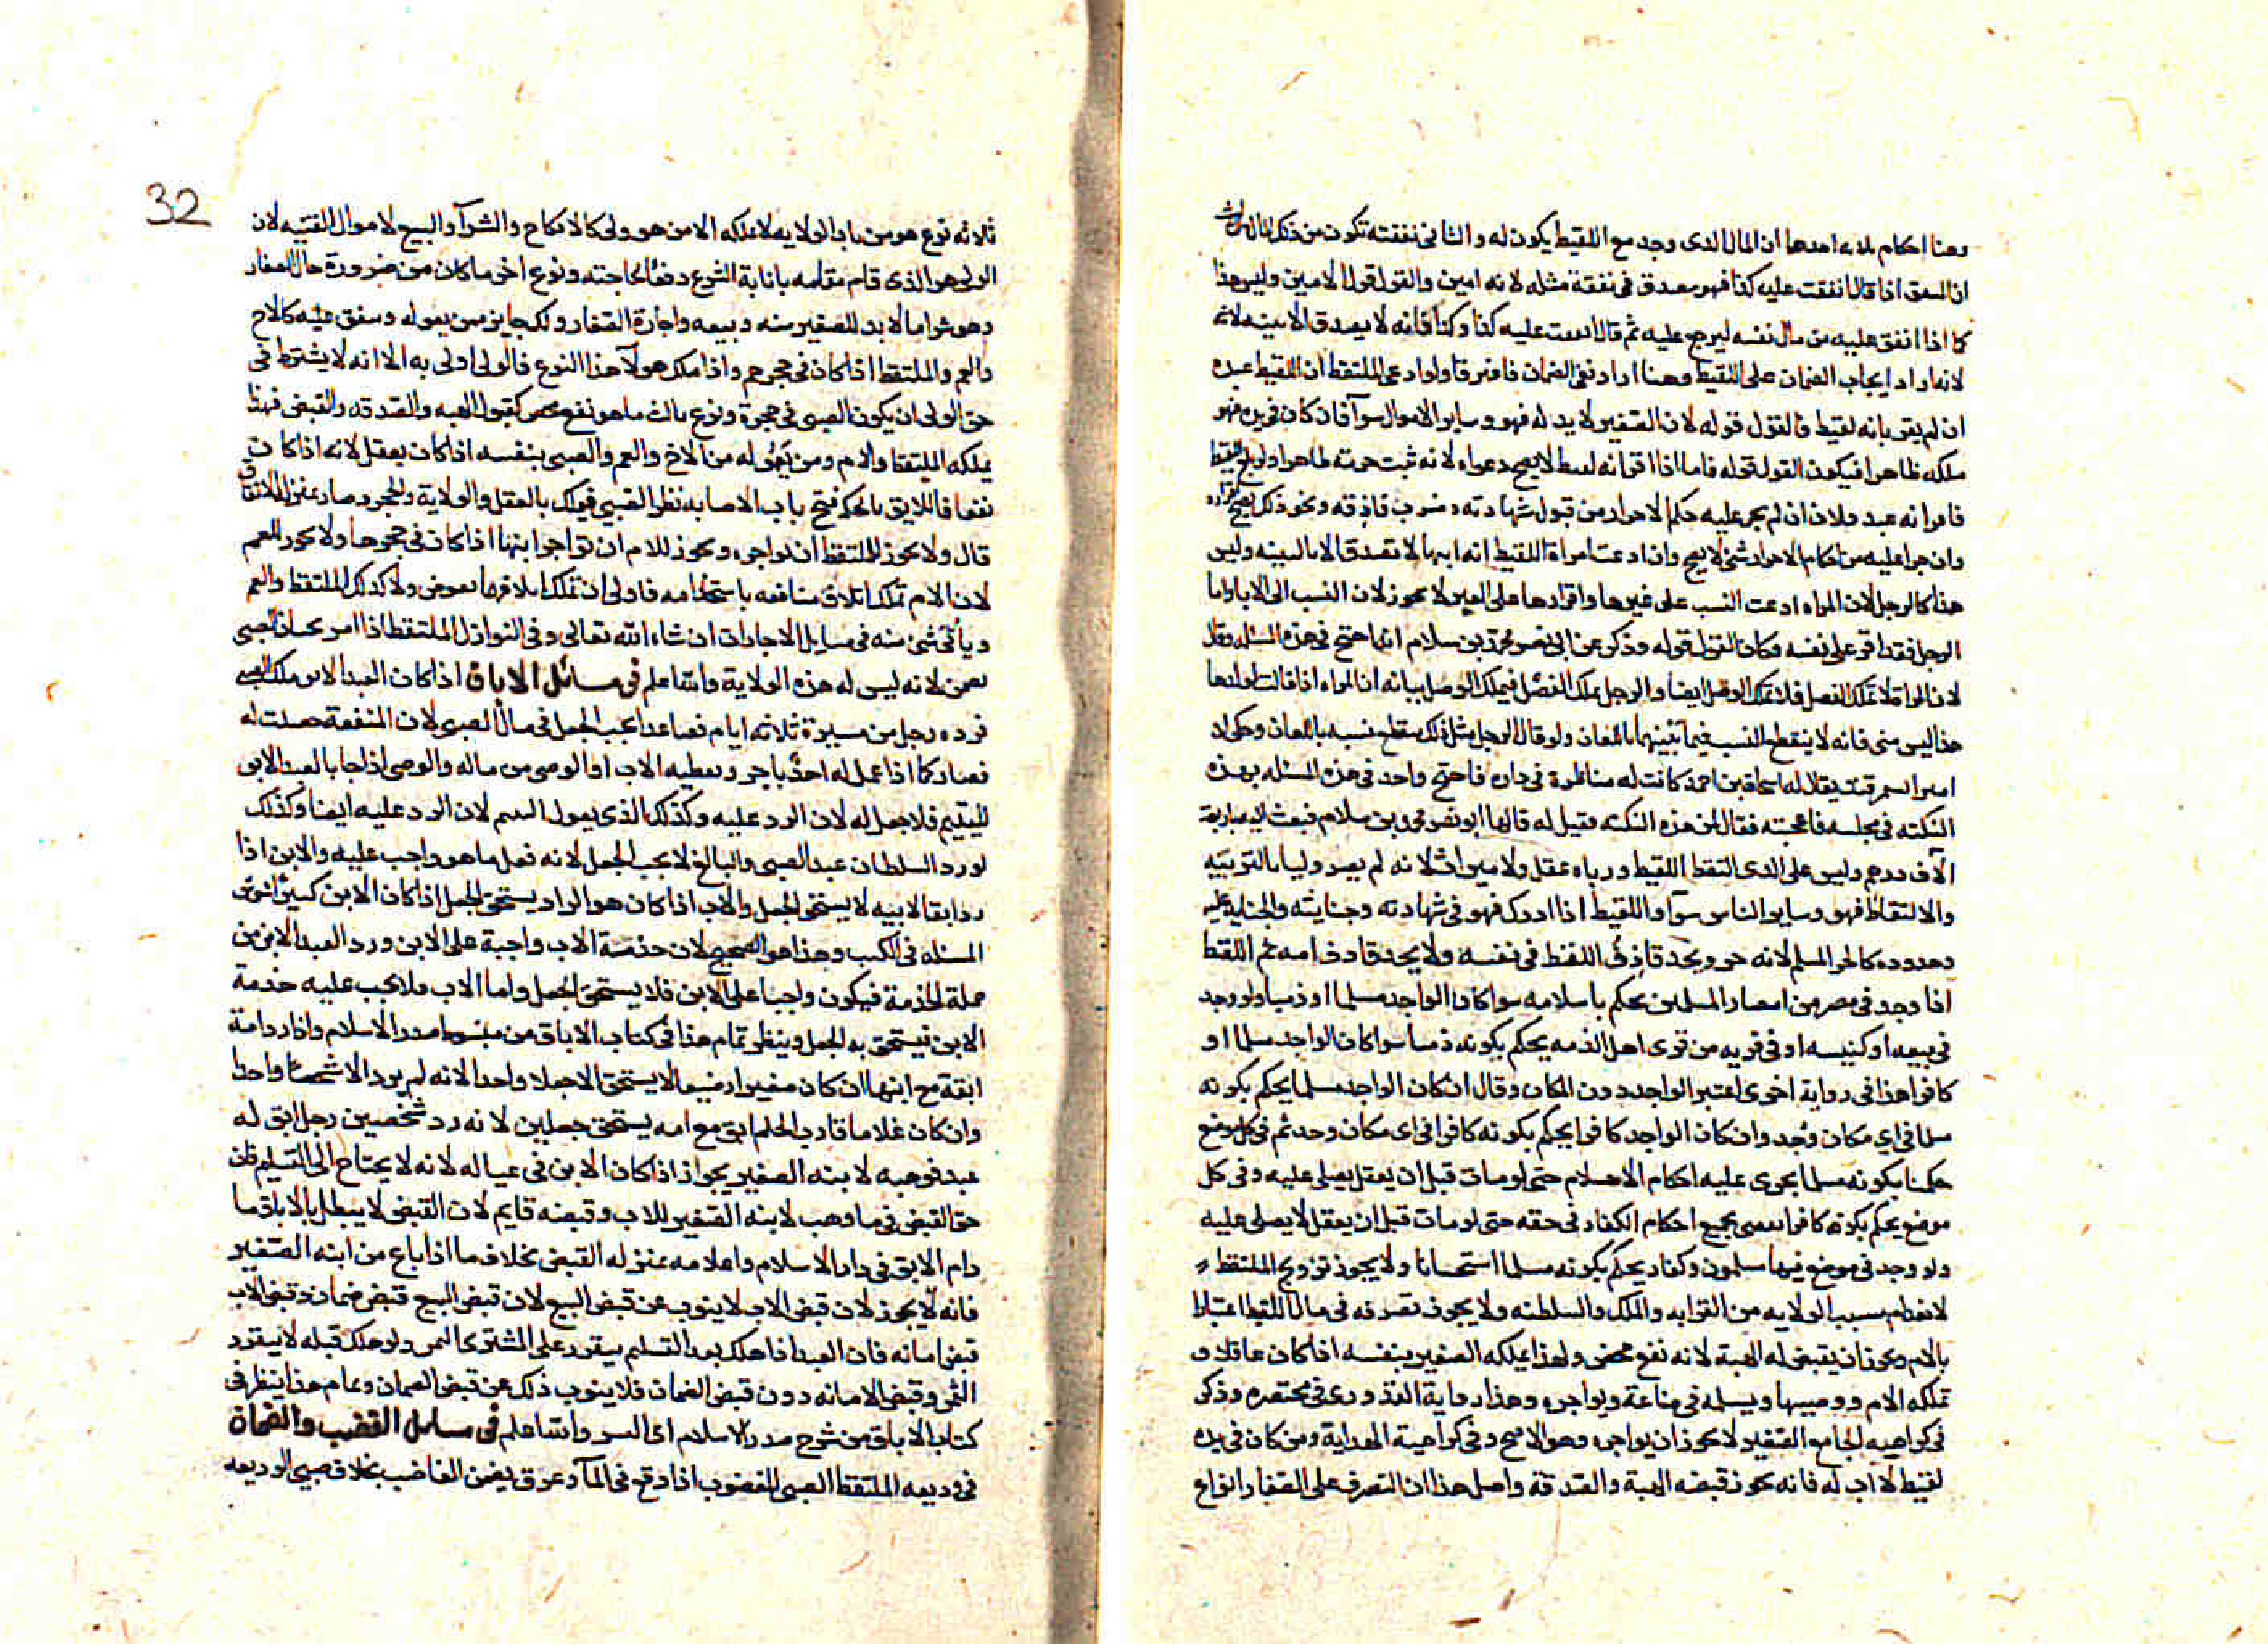 وهنا احكام ثلاثه احدها ان المال الذى وجد مع اللقيط يكون له والثانى نفقته تكون من ذلك المال والثالث
ان الملتقط اذا قال انفقت عليه كذا فهو مصدق فى نفقة مثله لانه امين والقول قول الامين وليس هذا
كما اذا انفق عليه من مال نفسه ليرجع عليه ثم قال انفقت عليه كذا وكذا فانه لا يصدق الا ببينه لانه
لانه اراد ايجاب الضمان على اللقيط وهنا اراد نفى الضمان فافترقا ولو ادعى الملتقط ان اللقيط عبده
ان لم يقر بانه لقيط فالقول قوله لان الصغير لا يد له فهو وساير الاموال سوآ فان كان فى يده فهو
ملكه ظاهرا فيكون القول قوله فاما اذا اقر انه لقيط لا يصح دعواه لانه ثبت حريته ظاهرا ولو بلغ اللقيط
فاقر انه عبد فلان ان لم يجر عليه حكم الاحرار من قبول شهادته وضرب قاذفه ونحو ذلك يصح اقراره
وان جرا عليه من احكام الاحرار شئ لا يصح وان ادعت امراة اللقيط انه ابنها لا تصدق الا بالبينه وليس
هذا كالرجل لان المراه ادعت النسب على غيرها واقرارها على الغير لا يجوز لان النسب الى الاباء واما
الرجل فقد اقر على نفسه فكان القول قوله وذكر عن ابى نصر محمد بن سلام انه احتج فى هذه المسئله وقال
لان المراة لا تملك الفصل فلا تملك الوصل ايضا والرجل يملك الفصل فيملك الوصل بيانه ان المراه اذا قالت لولدها
هذا ليس منى فانه لا ينقطع النسب فيما بينهما باللعان ولو قال الرجل مثل ذلك ينقطع نسبه باللعان وحكى ان
امير السمرقند يقال له اسحاق بن احمد كانت له مناظرة فى داره فاحتج واحد فى هذه المسئله بهذه
النكتة فى مجلسه فاعجبته فقال لمن هذه النكته فقيل له قالها ابو نصر محمد بن سلام فبعث اليه باربعة
الآف درهم وليس على الذى التقط اللقيط ورباه عقل ولا ميراث لانه لم يصر وليا بالتربيه
والالتقاط فهو وساير الناس سوآ واللقيط اذا ادرك فهو فى شهادته وجنايته والجناية عليه
وحدوده كالحر المسلم لانه حر ويحد قاذف اللقيط فى نفسه ولا يحد قاذف امه ثم اللقيط
اذا وجد فى مصر من امصار المسلمين يحكم باسلامه سوا كان الواجد مسلما او ذميا ولو وجد
فى بيعه او كنيسه او فى قريه من قرى اهل الذمه يحكم بكونه ذميا سوا كان الواجد مسلما او
كافرا هذا فى رواية وفى اخرى اعتبر الواجد دون المكان وقال ان كان الواجد مسلما يحكم بكونه
مسلما فى اى مكان وجد وان كان الواجد كافرا يحكم بكونه كافرا فى اى مكان وجد ثم فى كل موضع
حكمنا بكونه مسلما يجرى عليه احكام الاسلام حتى لو مات قبل ان يعقل يصلى عليه وفى كل
موضع يحكم بكونه كافرا يجرى جميع احكام الكفار فى حقه حتى لو مات قبل ان يعقل لا يصلى عليه
ولو وجد فى موضع فيها مسلمون وكفار يحكم بكونه مسلما استحسانا ولا يجوز تزويج الملتقط
لانعدام سبب الولايه من القرابه والملك والسلطنه ولا يجوز تصرفه فى مال اللقيط اعتبارا
بالام ويجوز ان يقبض له الهبة لانه نفع محض ولهذا يملكه الصغير بنفسه اذا كان عاقلا و
تملكه الام ووصيها ويسلمه فى صناعة ويواجره وهذا رواية القدورى فى مختصره وذكر
فى كراهيه الجامع الصغير لا يجوز ان يواجره وهو الاصح وفى كراهية الهداية ومن كان فى يده
لقيط لا اب له فانه يجوز قبضه الهبة والصدقة واصل هذا ان التصرف على الصغار انواع
32
ثلاثه نوع هو من باب الولايه لا يملكه الا من هو ولى كالانكاح والشرآ والبيع لاموال القنيه لان
الولى هو الذى قام مقامه بانابة الشرع دفعا لحاجته ونوع اخر ما كان من ضرورة حال الصغار
وهو شرا ما لابد للصغير منه وبيعه واجارة الصغار وذلك جايز ممن يعوله وينفق عليه كالاخ
والعم والملتقط اذا كان فى حجرهم واذا ملك هولآ هذا النوع فالولى اولى به الا انه لا يشترط فى
حق الولى ان يكون الصبى فى حجره ونوع ثالث ما هو نفع محض كقبول الهبه والصدقه والقبض فهذا
يملكه الملتقط والام ومن يعوله من الاخ والعم والصبى بنفسه اذا كان يعقل لانه اذا كان
نفعا فاللايق بالحكمة فتح باب الاصابه نظرا للصبى فيملك بالعقل والولاية والحجر وصار بمنزلة الانفاق
قال ولا يجوز للملتقط ان يواجره ويجوز للام ان تواجر ابنها اذا كان فى حجرها ولا يجوز للعم
لان الام تملك اتلاف منافعه باستخدامه فاولى ان تملك اتلافها بعوض ولا كذلك الملتقط والعم
وياتى شئ منه فى مسايل الاجارات ان شاء الله تعالى وفى النوازل الملتقط اذا امر بختان الصبى
يضمن لانه ليس له هذه الولاية والله اعلم فى مسائل الاباق اذا كان العبد الابق ملك الصبى
فرده رجل من مسيرة ثلاثه ايام فصاعدا يجب الجعل فى مال الصبى لان المنفعة حصلت له
فصار كما اذا عمل له احد باجر ويعطيه الاب او الوصى من ماله والوصى اذا جا بالعبد الابق
لليتيم فلا جعل له لان الرد عليه وكذلك الذى يعول اليتيم لان الرد عليه ايضا وكذلك
لو رد السلطان عبد الصبى والبالغ لا يجب الجعل لانه فعل ما هو واجب عليه والابن اذا
رد ابقا لابيه لا يستحق الجعل والاب اذا كان هو الراد يستحق الجعل اذا كان الابن كبيرا
المسئله فى الكتب وهذا هو الصحيح لان خدمة الاب واجبة على الابن ورد العبد الابق من
جملة الخدمة فيكون واجبا على الابن فلا يستحق الجعل واما الاب فلا يجب عليه خدمة
الابن فيستحق به الجعل وينظر تمام هذا فى كتاب الاباق من مبسوط صدر الاسلام واذا رد امة
ابقة مع ابنها ان كان صغيرا رضيعا لا يستحق الا جعلا واحدا لانه لم يرد الا شخصا واحدا
وان كان غلاما قارب الحلم ابق مع امه يستحق جعلين لانه رد شخصين رجل ابق له
عبد فوهبه لابنه الصغير يجوز اذا كان الابن فى عياله لانه لا يحتاج الى التسليم فان
حق القبض فى ما وهب لابنه الصغير للاب وقبضه قايم لان القبض لا يبطل بالاباق ما
دام الابق فى دار الاسلام واعلامه بمنزله القبض بخلاف ما اذا باع من ابنه الصغير
فانه لا يجوز لان قبض الاب لا ينوب عن قبض البيع لان قبض البيع قبض ضمان وقبض الاب
قبض امانه فان العبد اذا هلك بعد التسليم يتقرر على المشترى الثمن ولو هلك قبله لا يتقرر
الثمن وقبض الامانه دون قبض الضمان فلا ينوب ذلك عن قبض الضمان وتمام هذا ينظر فى
كتاب الاباق من شرح صدر الاسلام ابى اليسر والله اعلم فى مسايل الغصب والضمان
فى وديعه الملتقط الصبى المغصوب اذا وقع فى المآ وغرق يضمن الغاصب بخلاف صبى الوديعه